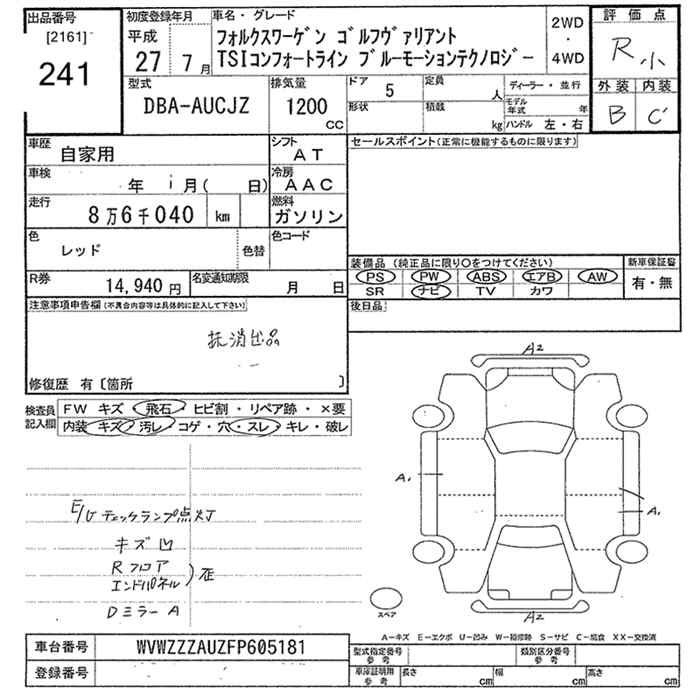 出品番号
[2161]
241
初度登録年月
平成
27 7月
車名・グレード
フォルクスワーゲン ゴルフヴァリアント
TSIコンフォートライン ブルーモーションテクノロジー
2WD
・
4WD
評価点
R 小
外装 内装
B C'
型式
DBA-AUCJZ
排気量
1200
CC
ドア 5
定員 人
形状
積載 kg
ディーラー・並行
モデル年式 年
ハンドル 左・右
車歴 自家用
シフト AT
車検 年 月( 日)
冷房 AAC
走行 8万6千040 km
燃料 ガソリン
色 レッド
色替
色コード
R券 14,940円
名変通知期限 月 日
セールスポイント(正常に機能するものに限ります)
装備品 (純正品に限り○をつけてください)
新車保証書
PS PW ABS エアB AW
有・無
SR ナビ TV カワ
後日品
注意事項申告欄 (不具合内容等は具体的に記入して下さい)
抹消出品
修復歴 有〔箇所 〕
検査員記入欄
FW キズ・飛石・ヒビ割・リペア跡・×要
内装 キズ・汚レ・コゲ・穴・スレ・キレ・破レ
E/Gチェックランプ点灯
キズ凹
Rフロア
エンドパネル)歪
DミラーA
A2
A1
A1
A2
スペア
A-キズ E-エクボ U-凹み W-補修跡 S-サビ C-腐食 XX-交換済
車台番号 WVWZZZAUZFP605181
登録番号
型式指定番号 参考
類別区分番号 参考
車庫証明用 参考
長さ cm
幅 cm
高さ cm